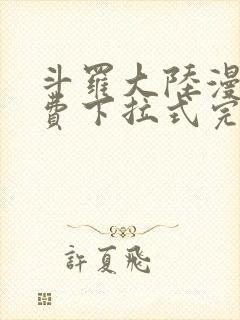 斗羅大陸漫
費下拉式完
許夏飛